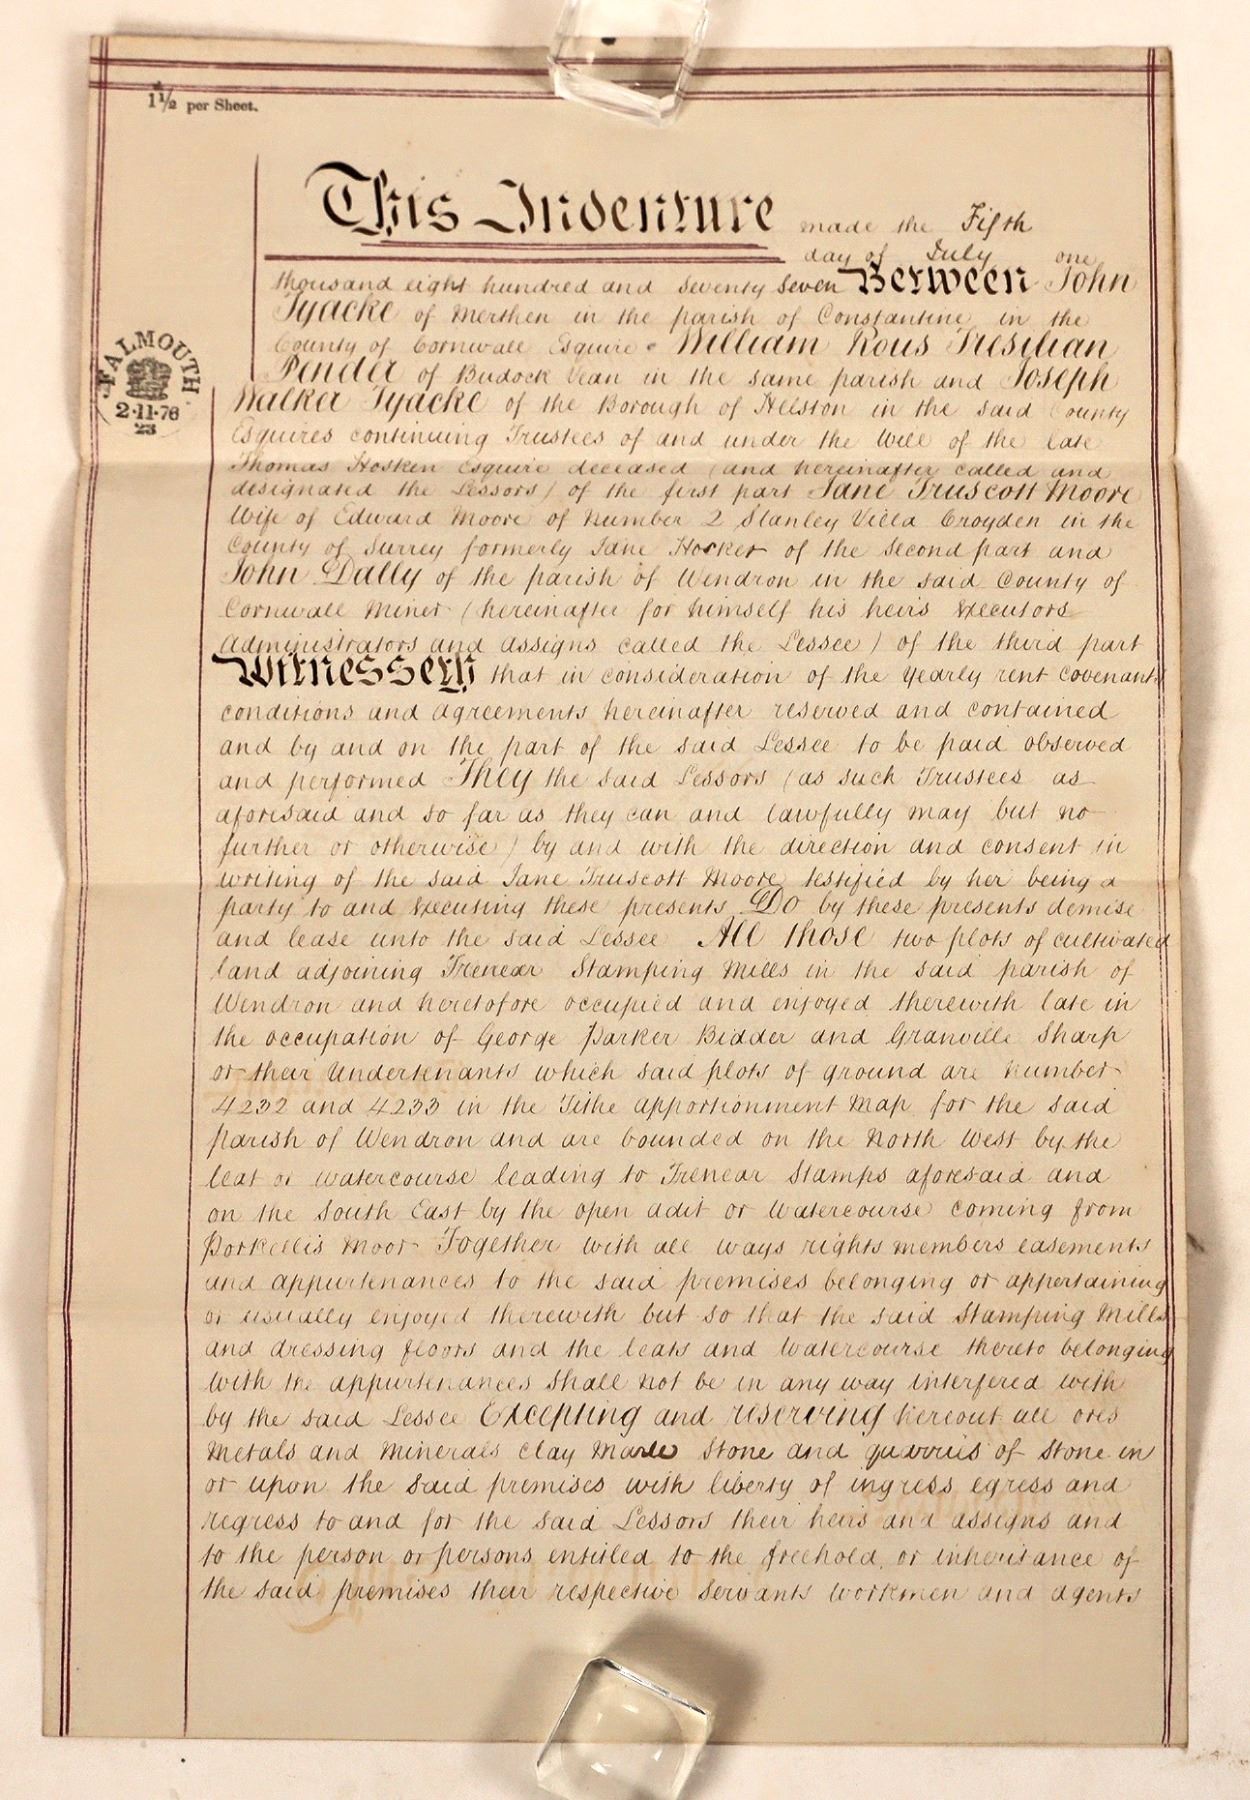 1½ per Sheet.
FALMOUTH
2·11·76
23
This Indenture made the Fifth
day of July one
thousand eight hundred and seventy seven Between John
Tyacke of Merthen in the parish of Constantine in the
County of Cornwall Esquire William Rous Tresilian
Pender of Budock Vean in the same parish and Joseph
Walker Tyacke of the Borough of Helston in the said County
Esquires continuing Trustees of and under the Will of the late
Thomas Hosken Esquire deceased (and hereinafter called and
designated the Lessors) of the first part Jane Truscott Moore
Wife of Edward Moore of Number 2 Stanley Villa Croyden in the
County of Surrey formerly Jane Hosken of the Second part and
John Dally of the parish of Wendron in the said County of
Cornwall Miner (hereinafter for himself his heirs Executors
Administrators and assigns called the Lessee) of the third part
Witnesseth that in consideration of the Yearly rent covenants
conditions and agreements hereinafter reserved and contained
and by and on the part of the said Lessee to be paid observed
and performed They the said Lessors (as such Trustees as
aforesaid and so far as they can and lawfully may but no
further or otherwise) by and with the direction and consent in
writing of the said Jane Truscott Moore testified by her being a
party to and Executing these presents Do by these presents demise
and lease unto the said Lessee All those two plots of cultivated
land adjoining Trenear Stamping Mills in the said parish of
Wendron and heretofore occupied and enjoyed therewith late in
the occupation of George Parker Bidder and Granville Sharp
or their Undertenants which said plots of ground are Number
4232 and 4233 in the Tithe apportionment Map for the said
parish of Wendron and are bounded on the North West by the
leat or watercourse leading to Trenear Stamps aforesaid and
on the South East by the open adit or Watercourse coming from
Porkellis Moor Together with all ways rights members easements
and appurtenances to the said premises belonging or appertaining
or usually enjoyed therewith but so that the said Stamping Mills
and dressing floors and the leats and Watercourse thereto belonging
with the appurtenances shall not be in any way interfered with
by the said Lessee Excepting and reserving hereout all ores
Metals and Minerals Clay Marle Stone and quarries of Stone in
or upon the said premises with liberty of ingress egress and
regress to and for the said Lessors their heirs and assigns and
to the person or persons entitled to the freehold or inheritance of
the said premises their respective Servants Workmen and agents